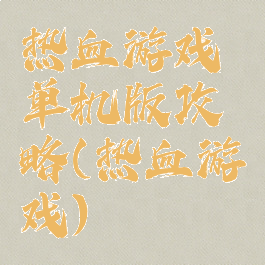 热血游戏
单机版攻
略(热血游
戏)